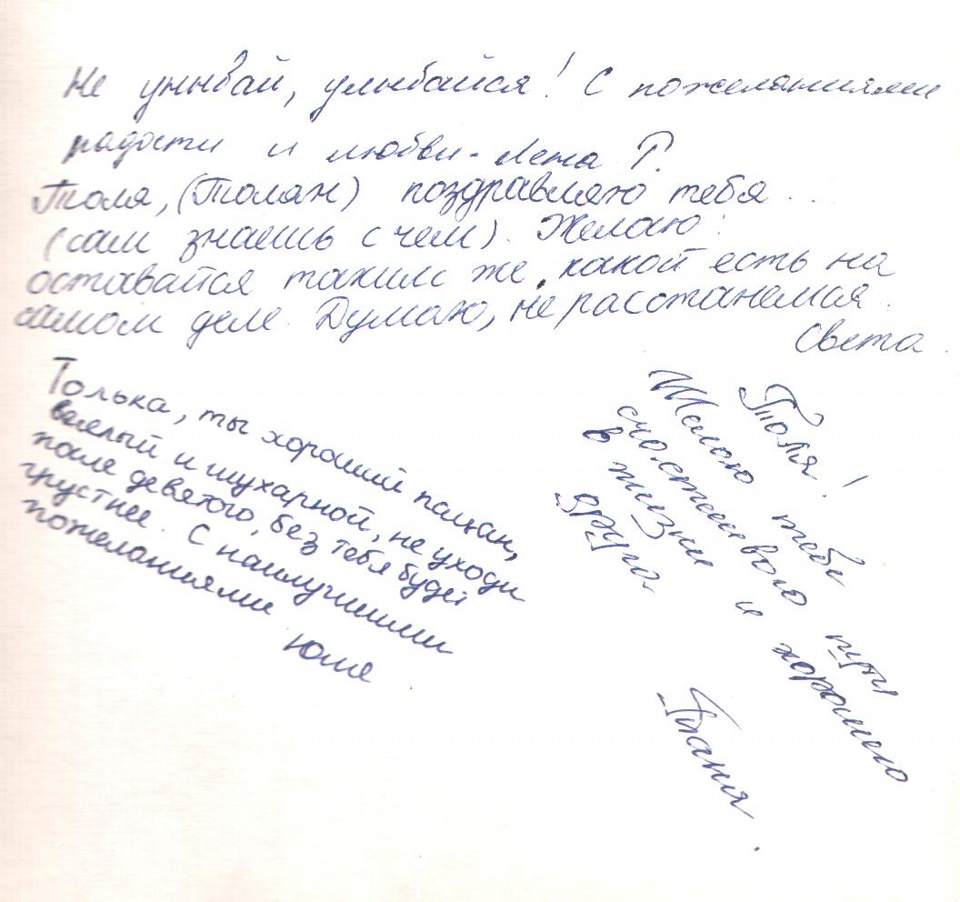 Не унывай, улыбайся! С пожеланиями
радости и любви - Лена Г.
Толя, (Толян) поздравляю тебя...
(сам знаешь с чем). Желаю:
оставайся таким же, какой есть на
самом деле. Думаю, не расстанемся.
Света.
Толька, ты хороший пацан,
веселый и шухарной, не уходи
после девятого, без тебя будет
грустнее. С наилучшими
пожеланиями
Юля
Толя!
Желаю тебе
счастливого пути
в жизни и хорошего
друга.
Таня.